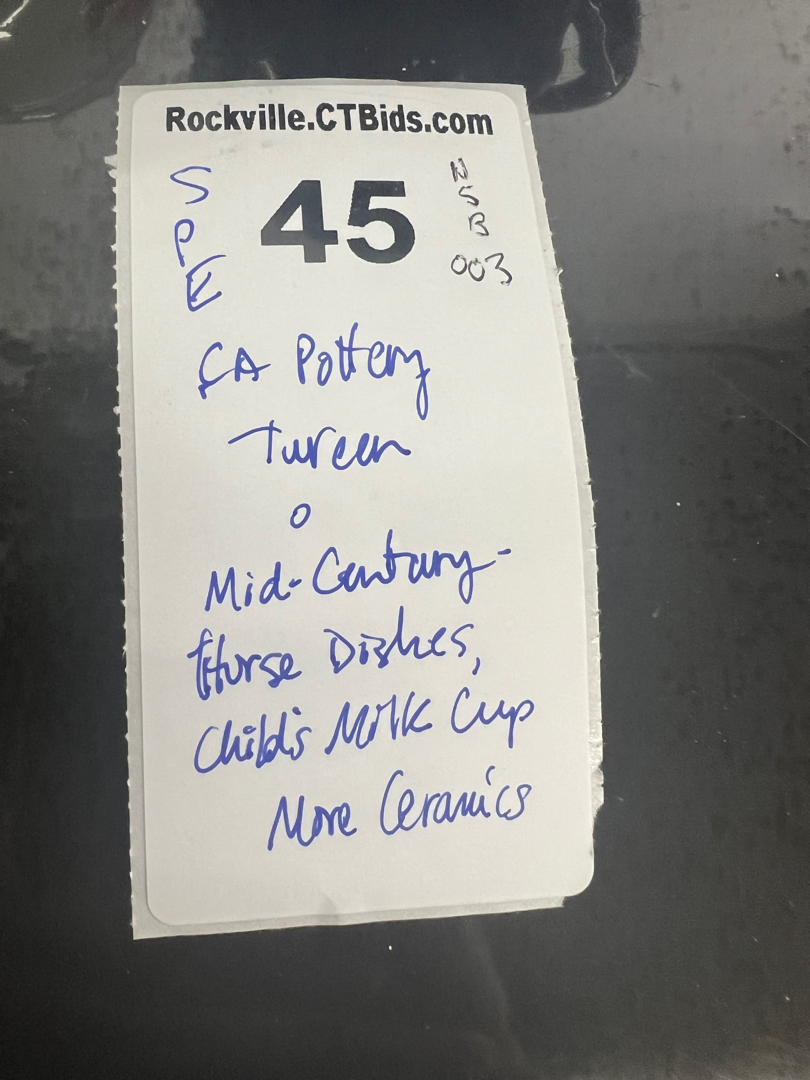 Rockville.CTBids.com
S
P
E
45
N
S
B
003
CA Pottery
Tureen
o
Mid-Century-
Horse Dishes,
Child's Milk Cup
More Ceramics